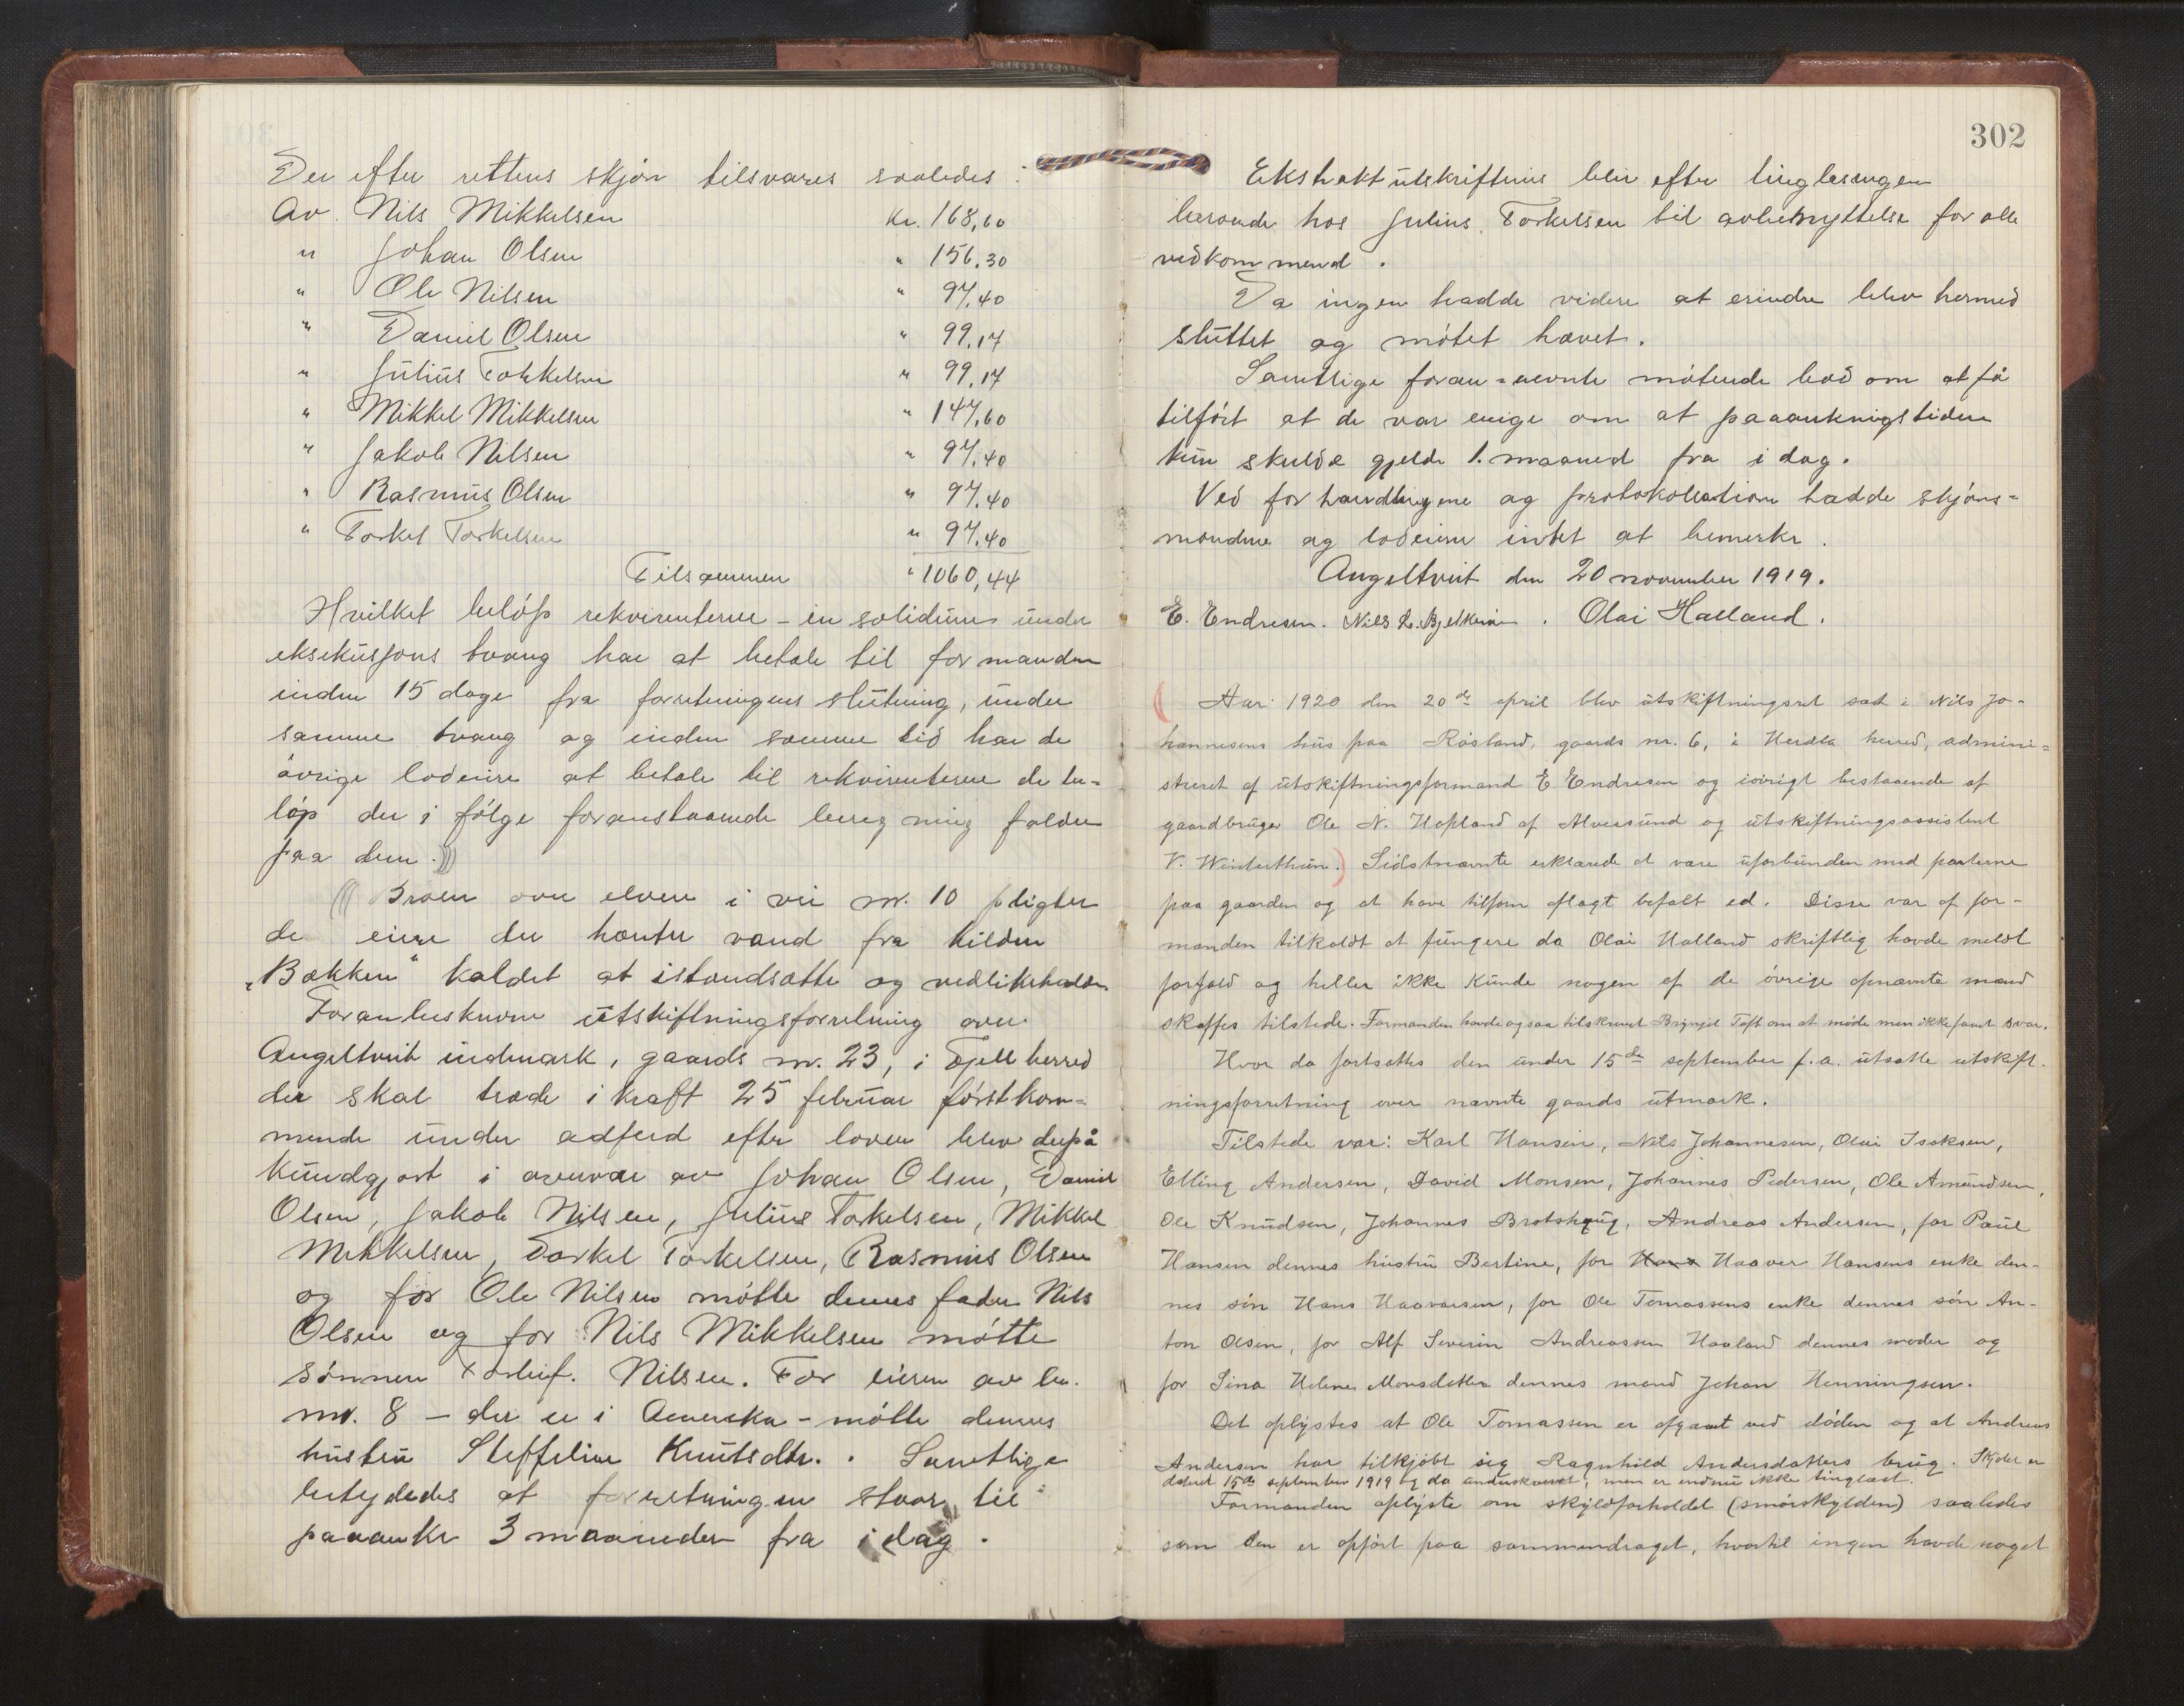 Der efter rettens skjøn tilsvares saaledes:
Av Nils Mikkelsen Kr. 168,60
" Johan Olsen " 156,30
" Ole Nilsen " 97,40
" Daniel Olsen " 99,17
" Julius Torkelsen " 99,17
" Mikkel Mikkelsen " 147,60
" Jakob Nilsen " 97,40
" Rasmus Olsen " 97,40
" Torkel Torkelsen " 97,40
Tilsammen " 1060,44
Hvilket beløp rekvirenterne - in solidum under
eksekusjons tvang har at betale til formanden
inden 15 dage fra forretningens slutning, under
samme tvang og inden samme tid har de
øvrige lodeiere at betale til rekvirenterne de be=
løp der i følge foranstaaende beregning falder
paa dem.
Broen over elven i vei nr. 10 pligter
de eiere der henter vand fra kilden
„Bækken" kaldet at istandsætte og vedlikeholde.
Foranbeskrevne utskiftningsforretning over
Angeltveit indmark, gaards nr. 23, i Fjell herred
der skal træde i kraft 25 februar førstkom=
mende under adferd efter loven blev derpå
kundgjort i overvær av Johan Olsen, Daniel
Olsen, Jakob Nilsen, Julius Torkelsen, Mikkel
Mikkelsen, Torkel Torkelsen, Rasmus Olsen
og for Ole Nilsen møtte dennes fader Nils
Olsen og for Nils Mikkelsen møtte
sønnen Torleif. Nilsen. For eieren av br.
nr. 8 – der er i Amerika – møtte dennes
hustru Steffeline Knutsdtr.. Samtlige
betydedes at forretningen staar til
paaanke 3 maaneder fra idag.
302
Ekstraktutskriftens blir efter tinglæsingen
beroende hos Julius Torkelsen til avbenyttelse for alle
vedkommend.
Da ingen hadde videre at erindre blev hermed
sluttet og møtet hævet.
Samtlige foran=nevnte møtende bad om at få
tilført at de var enige om at paaankningstiden
kun skulde gjelde 1. maaned fra i dag.
Ved forhandlingene og protokollationen hadde skjøns=
mændene og lodeierne intet at bemerke.
Angeltveit den 20 november 1919.
E. Endresen. Nils L. Bjelkerøen. Olai Halland.
Aar 1920 den 20de april blev utskiftningsret sat i Nils Jo-
hannesens hus paa Røsland, gaards nr. 6, i Herdla herred, admini=
streret af utskiftningsformand E Endresen og iøvrigt bestaaende af
gaardbruger Ole N. Hopland af Alversund og utskiftningsassistent
V. Winterthun. Sidstnævnte erklærede at være uforbunden med parterne
paa gaarden og at have tilforn aflagt befalt ed. Disse var af for-
manden tilkaldt at fungere da Olai Halland skriftlig havde meldt
forfald og heller ikke kunde nogen af de øvrige opnævnte mænd
skaffes tilstede. Formanden havde ogsaa tilskrevet Brynjel Toft om at møde men ikke faaet svar.
Hvor da fortsattes den under 15de september f.a. utsatte utskift-
ningsforretning over nævnte gaards utmark.
Tilstede var: Karl Hansen, Nils Johannesen, Olai Isaksen,
Elling Andersen, David Monsen, Johannes Pedersen, Ole Amundsen,
Ole Knudsen, Johannes Brotshaug, Andreas Andersen, for Paul
Hansen dennes hustru Bertine, for Hans Haaver Hansens enke den-
nes søn Hans Haaversen, for Ole Tomassens enke dennes søn An-
ton Olsen, for Alf Severin Andreassen Haaland dennes moder og
for Sina Helene Monsdatter dennes mand Johan Henningsen.
Det oplystes at Ole Tomassen er afgaaet ved døden og at Andreas
Andersen har tilkjøbt sig Ragnhild Andersdatters brug. Skjødet er
dateret 15de september 1919 og da underskrevet, men er endnu ikke tinglæst.
Formanden oplyste om skyldforholdet (smørskylden) saaledes
som den er opført paa sammendraget, hvortil ingen havde noget